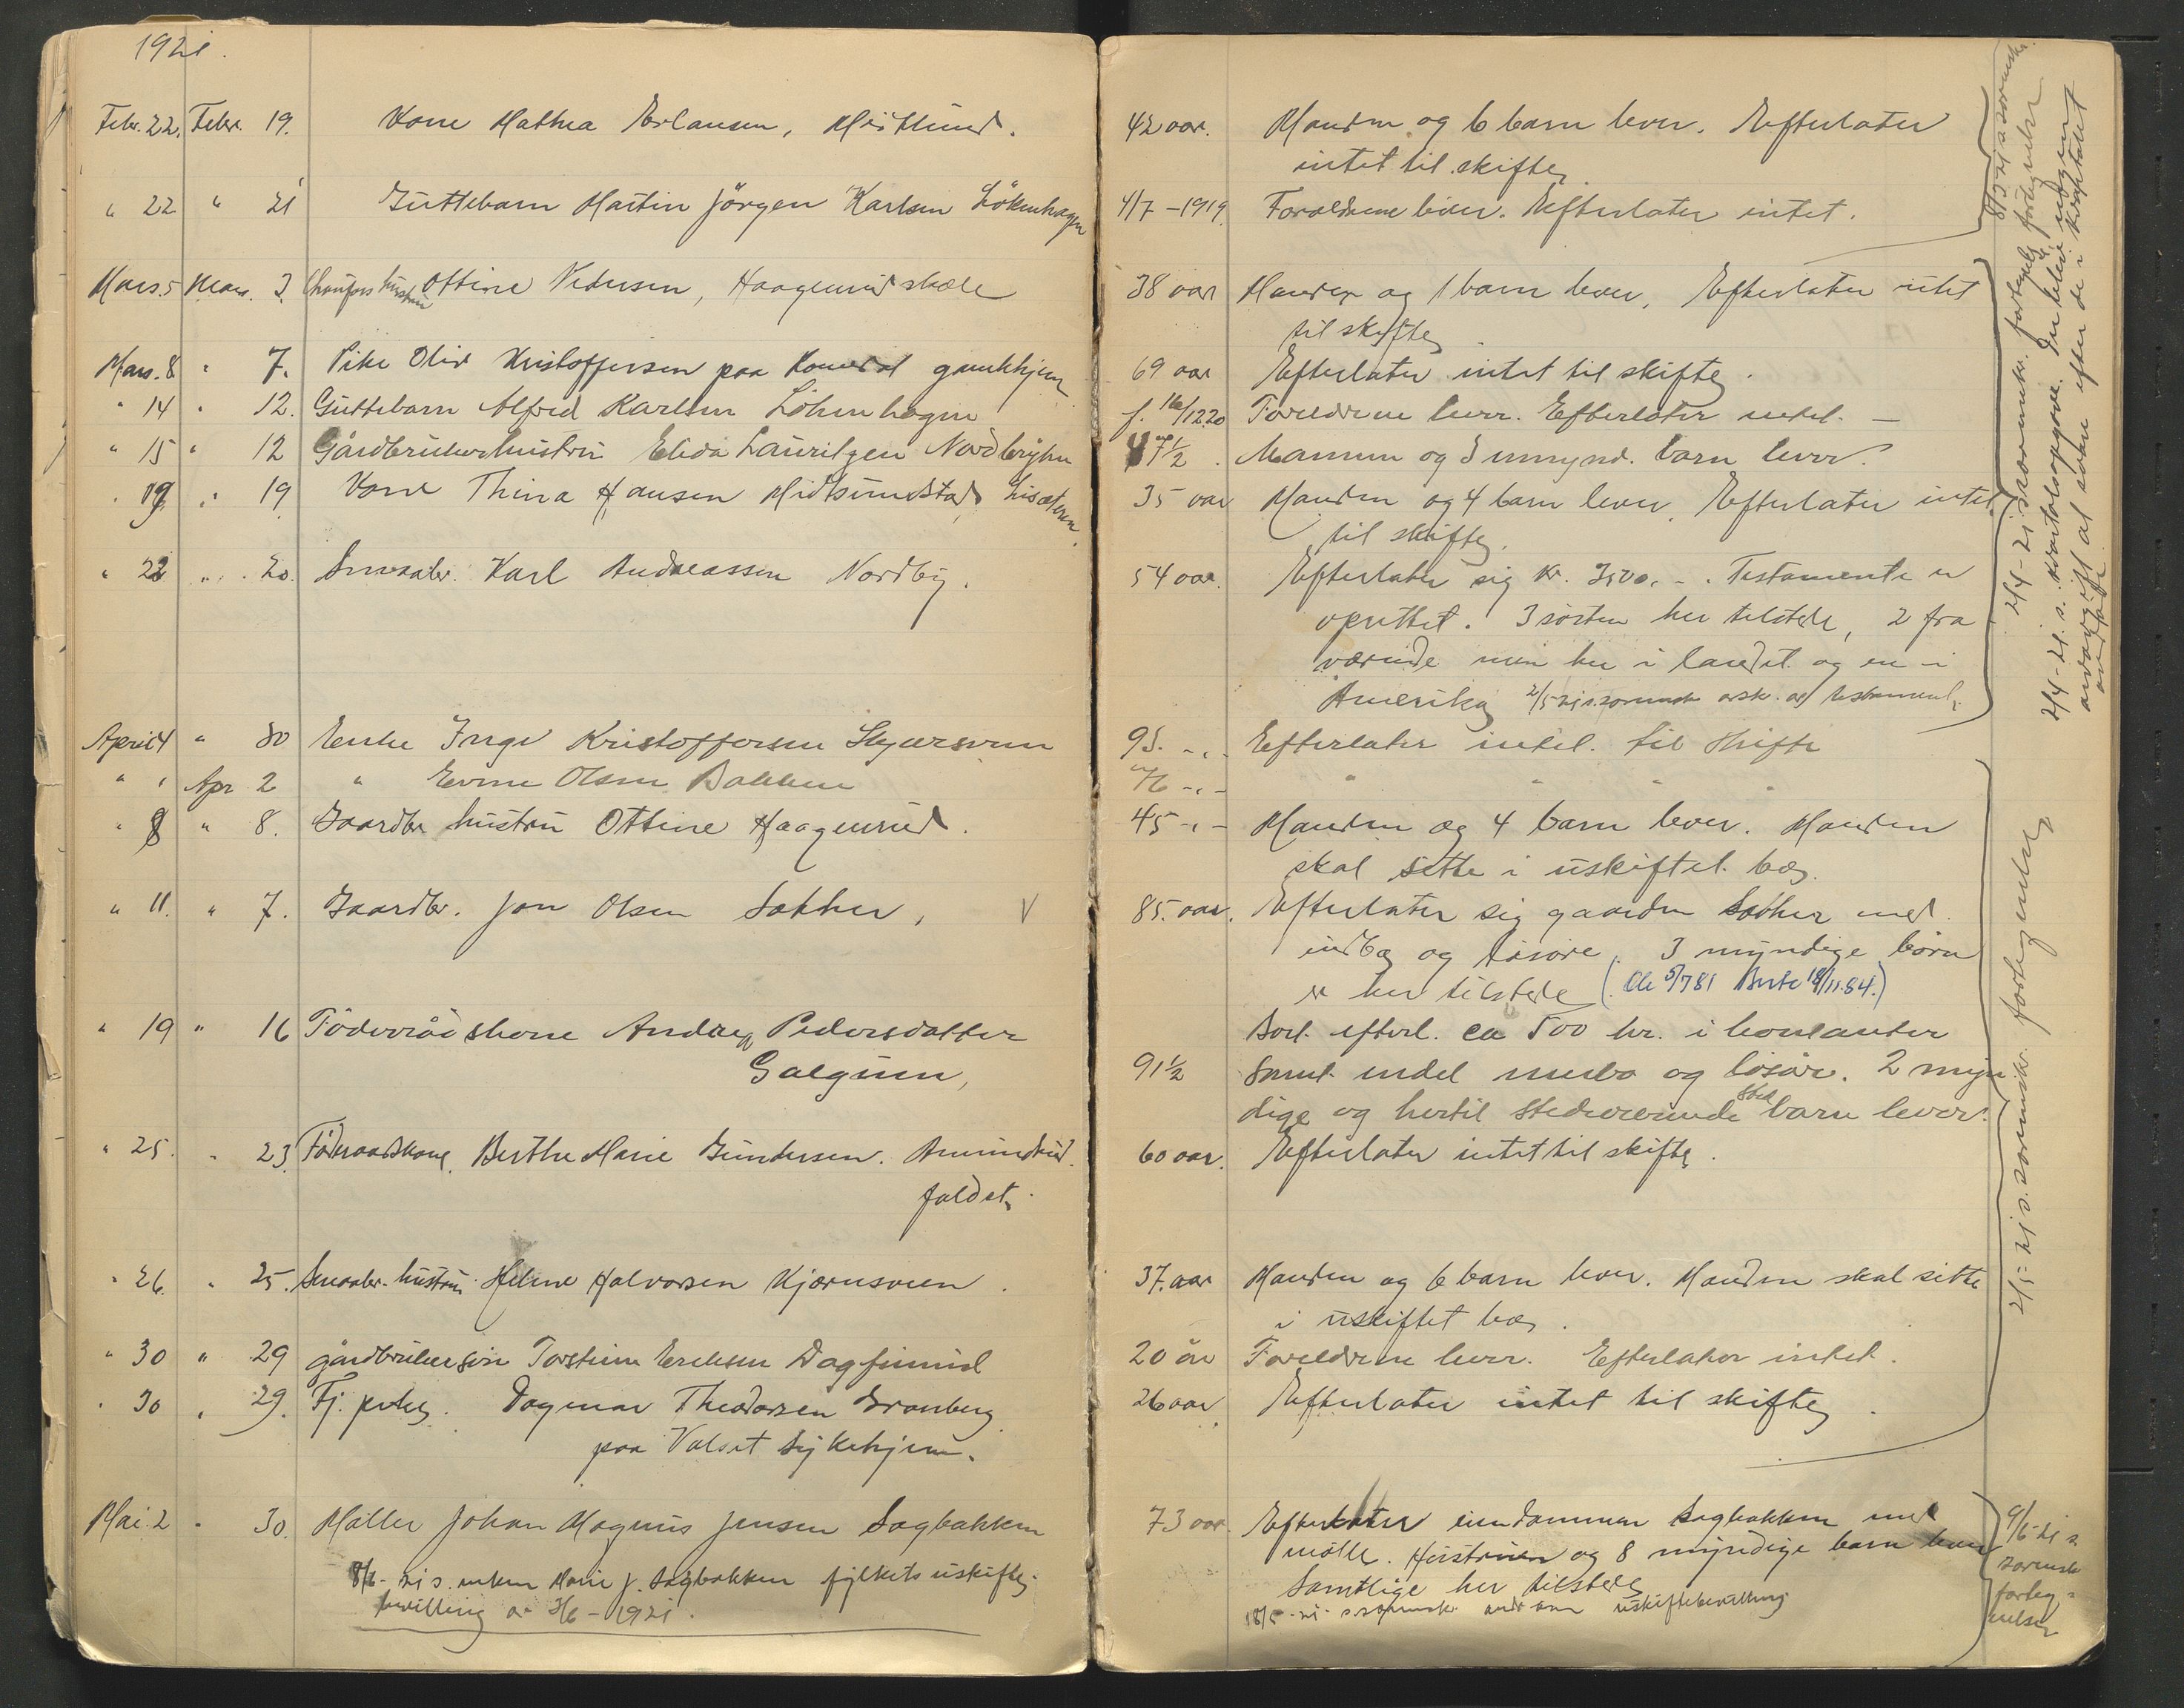 1921.
Febr. 22. Febr. 19. Kone Mathea Erlansen,
42 aar. Manden og 6 barn lever. Efterlater
intet til skifte
" 22 " 21 Guttebarn Martin Jörgen Karlsen Lökenhagen
4/7-1919. Forældrene lever. Efterlater intet.
Mars. 5 Mars. 3. hustru Ottine Pedersen, Haagenrud skole
38 aar Manden og 1 barn lever, Efterlater intet
til skifte
Mars. 8 " 7. Pike Oliv Kristoffersen paa gamlehjem
69 aar Efterlater intet til skifte.
" 14 " 12. Guttebarn Alfred Karlsen Löhenhagen
f. 16/12 20 Foreldrene lever. Efterlater intet. —
" 15 " 12 Gårdbrukerhustru Elida Lauritzen Nordbryhn
47 1/2. Mannen og 3 unmynd. barn lever.
" 19 " 19 Kone Thina Hansen Midtsundstad,
35 aar Manden og 4 barn lever. Efterlater intet
til skifte.
" 22 " 20. Smaabr. Karl Andreassen Nordby.
54 aar. Efterlater sig kr. 3500,-. Testamente er
oprettet. 3 søsken her tilstede, 2 fra
værende men her i landet og en i
Amerika 2/5 21 s. sorensk. avskr. av testament.
April 4 " 30 Enke Inge Kristoffersen
93. -"- Efterlater intet. til skifte
" " Apr 2 " Evine Olsen Bakken
76 -"- " " "
" 8 " 8. Gaardbr hustru Ottine Haagenrud.
45 -"- Manden og 4 barn lever. Manden
skal sitte i uskiftet bo.
" 11. " 7. Gaardbr. Jon Olsen Sakker, V
85. aar. Efterlater sig gaarden Sakker med
indbo og løsøre. 3 myndige børn
er her tilstede (Ole 5/7 81 Berte 18/11.84.)
" 19 " 16 Föderrådskone Andrea Pedersdatter
Galguen,
Bort. efterl. ca 500 kr. i kontanter
91 1/2 samt endel innbo og lösöre. 2 myn
dige og hertil stedværende barn lever.
" 25. " 23. Föderaadskone. Berthe Marie Gundersen. Amundrud
faldet.
60 aar. Efterlater intet til skifte.
" 26. " 25. Smaabr. hustru Helene Halvorsen Kjærnsveen.
37. aar Manden og 6 barn lever. Manden skal sitte
i uskiftet bo.
" 30 " 29 gårdbrukersön Torstein Eriksen Dagfinrud
20 år Foreldrene lever. Efterlater intet.
" 30 " 29. Fj. Dagmar Theodorsen Granberg
paa Valset Sykehjem.
26 aar Efterlater intet til skifte.
Mai. 2 " 30. Møller Johan Magnus Jensen Sagbakken
73 aar. Efterlater eiendommen Sagbakken med
mølle. Hustruen og 8 myndige barn lever
Samtlige her tilstede
18/5-21 s. sorensk. uskiftebevilling
8/6-21 s. enken Marie J. Sagbakken fylkets uskifte-
bevilling av 3/6-1921.
2/4-21 s. sorenskr. fortegnelse
2/5-21 s. sorenskr. fortegnelse
9/6-21 s.
sorensk
forteg-
nelse